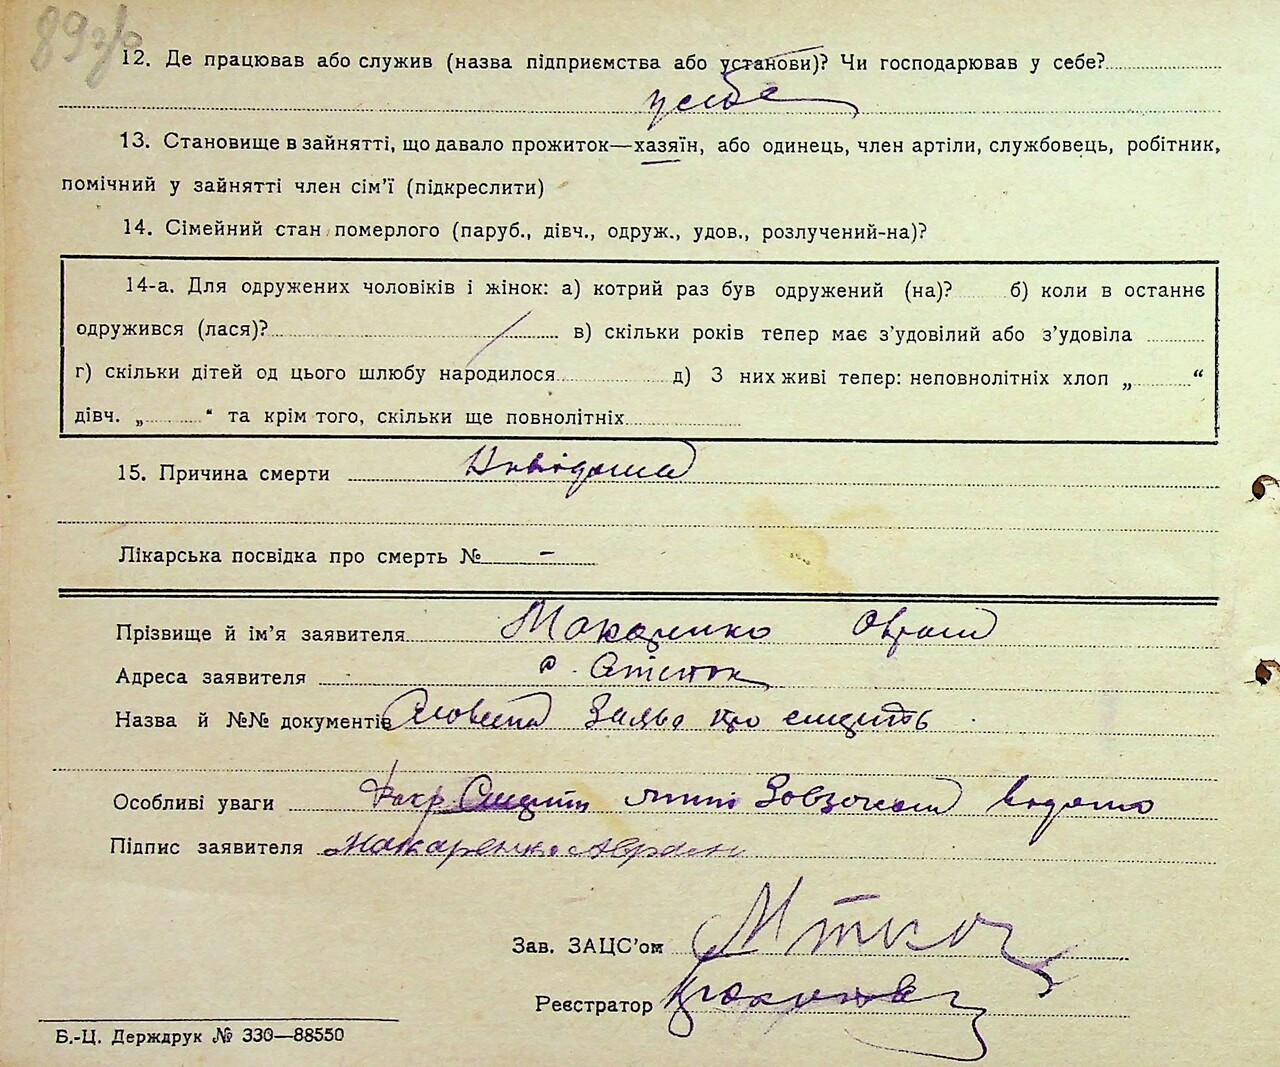 89 з/р
12. Де працював або служив (назва підприємства або установи)? Чи господарював у себе?
у себе
13. Становище в зайнятті, що давало прожиток—хазяїн, або одинець, член артіли, службовець, робітник,
помічний у зайнятті член сім’ї (підкреслити)
14. Сімейний стан померлого (паруб., дівч., одруж., удов., розлучений-на)?
14-а. Для одружених чоловіків і жінок: а) котрий раз був одружений (на)? б) коли в останнє
одружився (лася)? в) скільки років тепер має з’удовілий або з’удовіла
г) скільки дітей од цього шлюбу народилося д) З них живі тепер: неповнолітніх хлоп „ “
дівч. „ “ та крім того, скільки ще повнолітніх
15. Причина смерти Невідома
Лікарська посвідка про смерть № –
Прізвище й ім’я заявителя Макаренко Аврам
Адреса заявителя с.
Назва й №№ документів Словесна Заява про смерть
Особливі уваги
Підпис заявителя Макаренко Аврам
Зав. ЗАЦС’ом
Реєстратор
Б.-Ц. Держдрук № 330—88550